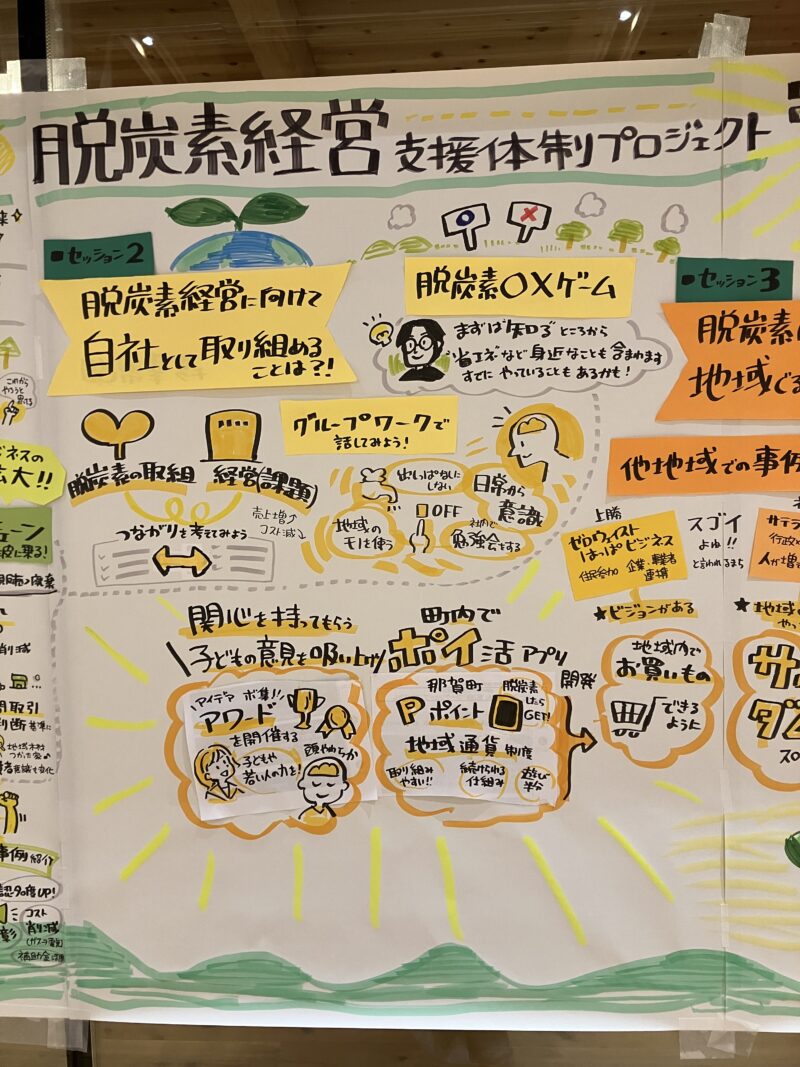 脱炭素経営 支援体制プロジェクト
■セッション2
脱炭素経営に向けて
自社として取り組める
ことは?!
脱炭素〇×ゲーム
まずは知るところから
省エネなど身近なことも含まれます
すでにやっていることもあるかも!
グループワークで
話してみよう!
脱炭素の取組
経営(課題)
売上増↑
コスト減↓
つながりを考えてみよう
出しっぱなしに
しない
日常から
意識
OFF
地域の
モノを使う
社内で
勉強会をする
関心を持ってもらう
子どもの意見を吸い上げ
アイデア ボ集!!
アワード
を開催する
子どもや
若い人の力を!
頭やわらか
町内で
ポイ活アプリ
那賀町
Pポイント
脱炭素
したら
GET!
地域通貨制度
取り組み
やすい!!
続けられる
仕組み
遊び
半分
開発
地域内で
お買いもの
できる
ように
■セッション3
脱炭素
地域
他地域での事例
上勝
ゼロウェイスト
はっぱビジネス
住民参加 企業、事業者
連携
スゴイ
よね!!
と言われるまち
★ビジョンがある
行政
人が増
★地域の
これから
ビジネスの
拡大!!
チェーン
削減
取引
判断基準に
地域木材
つかった家
意識も変化
事例紹介
認知度UP!
コスト
削減
補助金